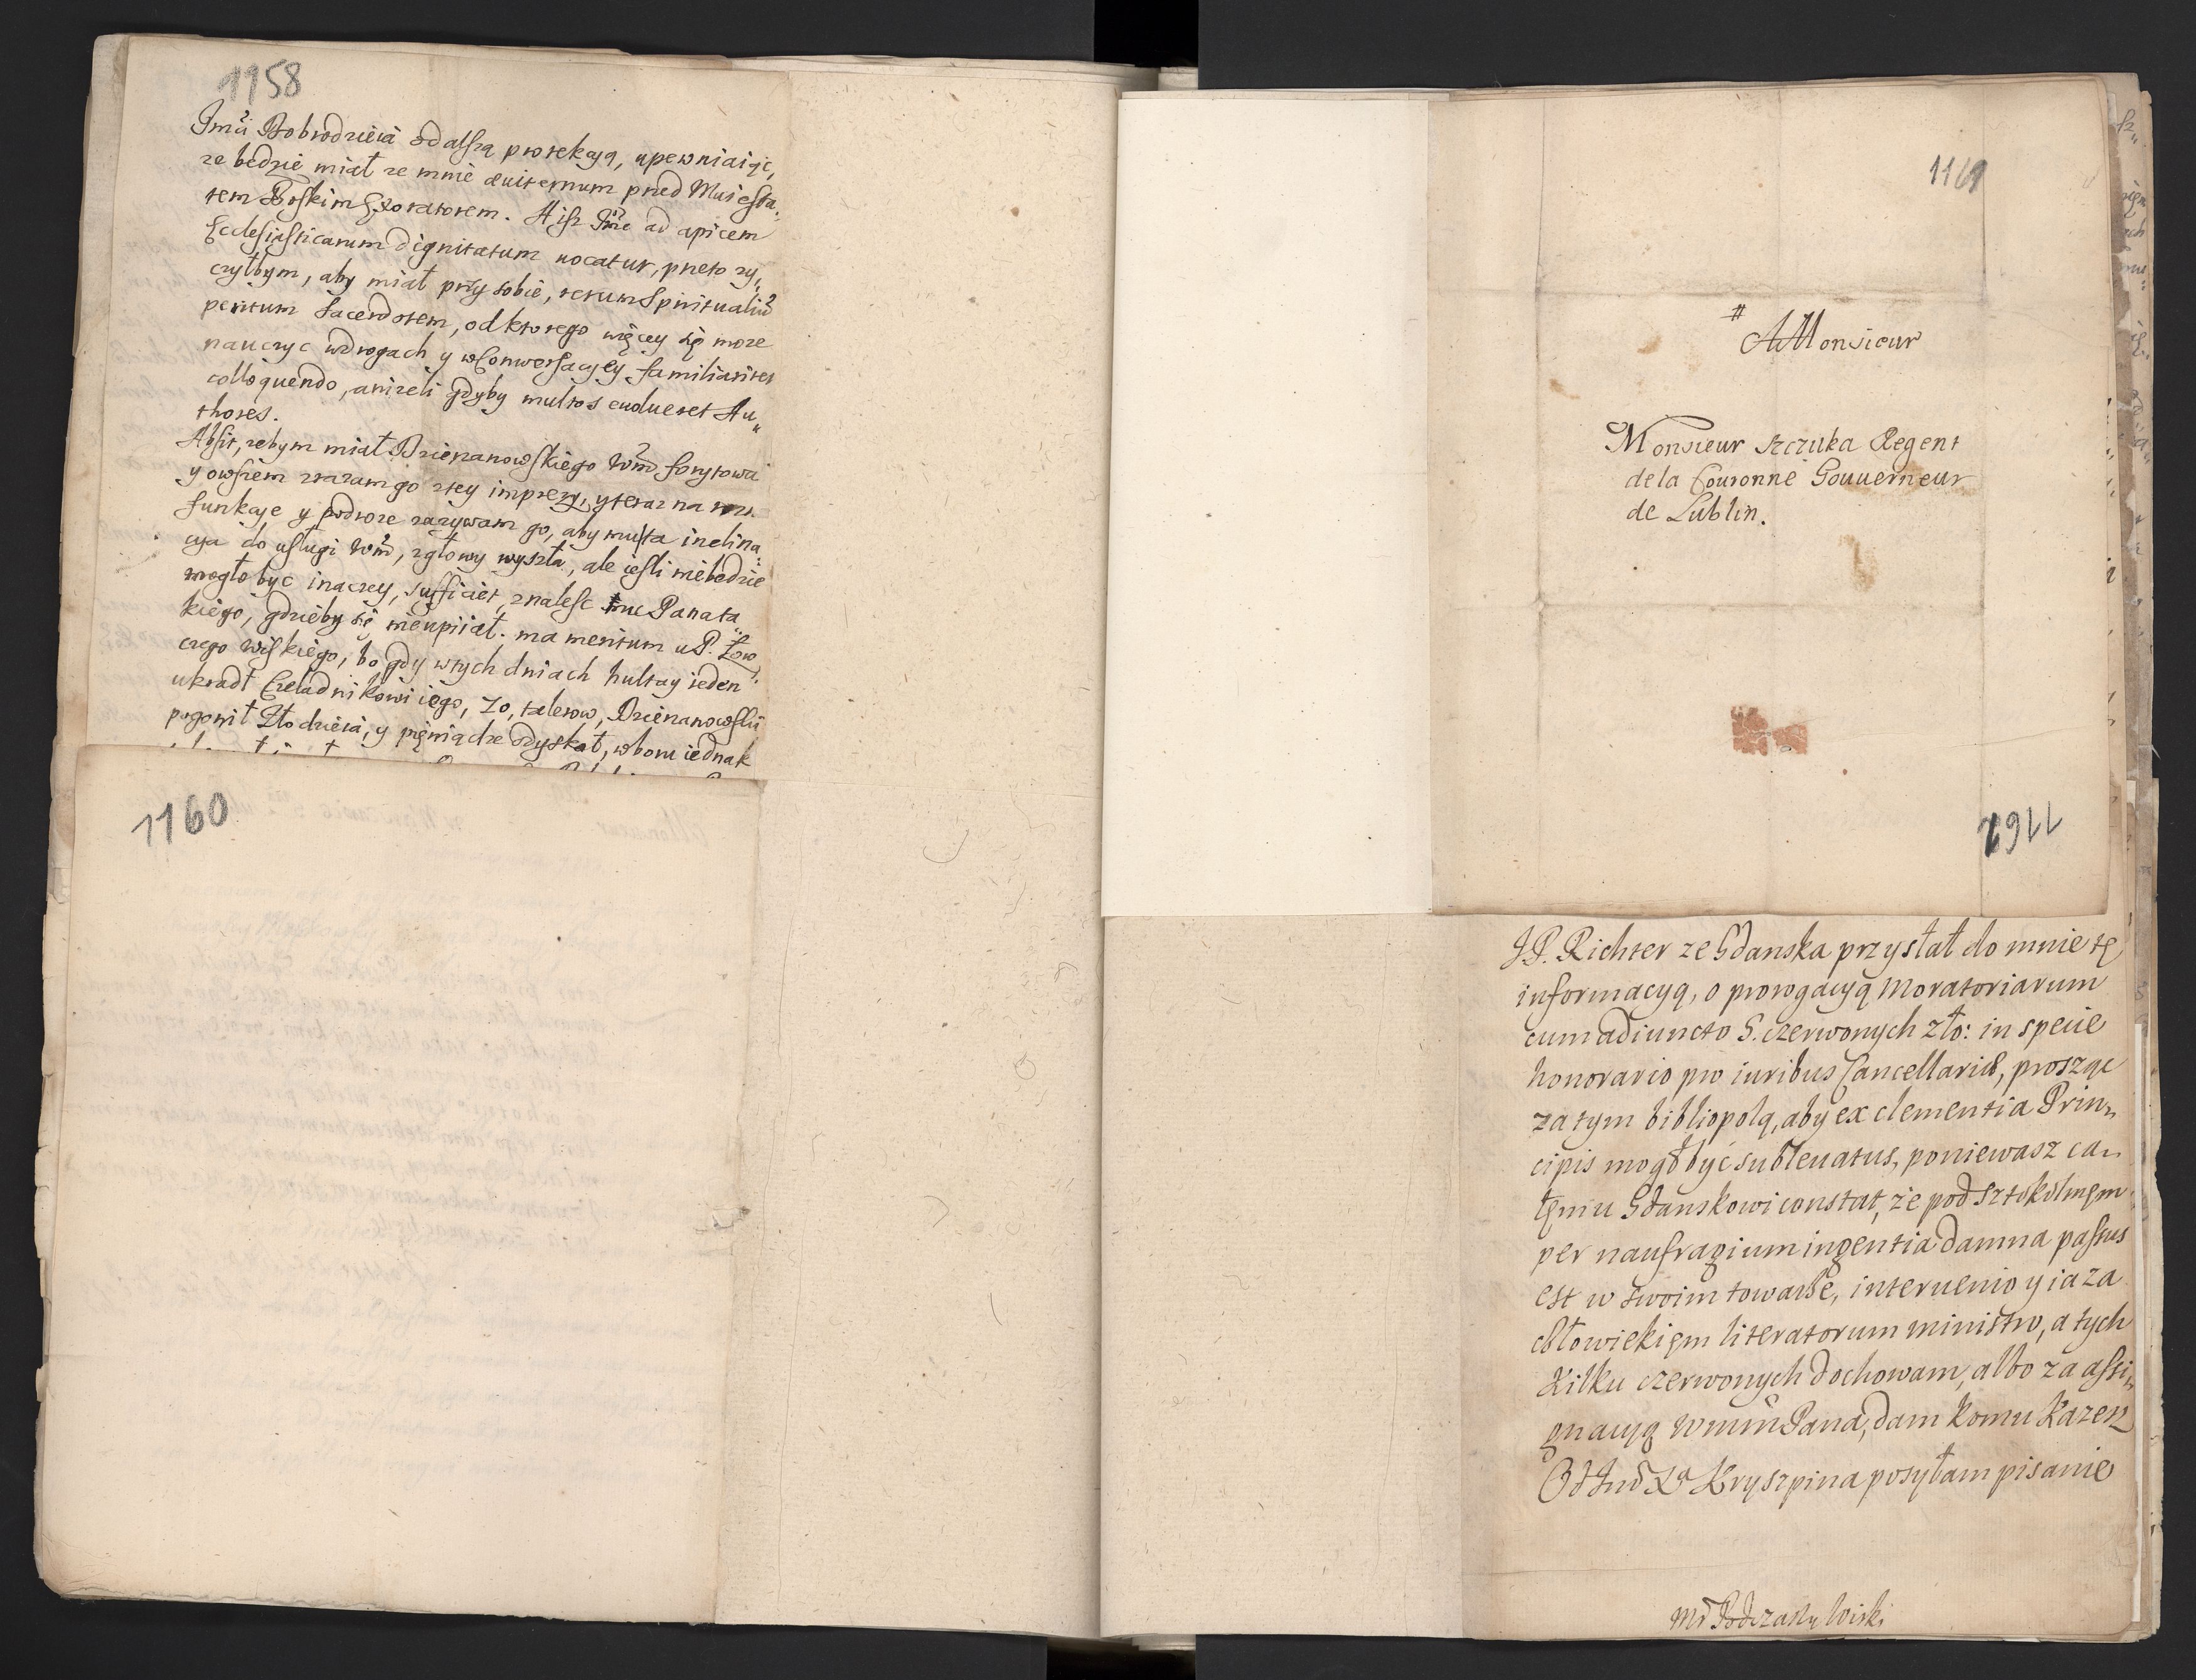 1158
Jmci Dobrodzieia o dalszą protekcyą, upewniaiąc,
ze będzie miał ze mnie æuiternum pred Maiesta„
tem Boskim Exoratorem. A isz Jmc ad apicem
Ecclesiasticarum dignitatum uocatur, preto zy„
czyłbym, aby miał przy sobie, rerum Spiritualiu
peritum Sacerdotem, od ktorego więcey się moze
nauczyc w drogach y w Conwersacyey familiariter
colloquendo, anizeli gdyby multos euolueret Au„
thores.
Absit, zebym miał Dzierzanowskiego Wm forytowa
y owszem zrazam go z tey imprezy, y teraz na
funkcye y podroze zazywam go, aby mu ta inclina„
cya do usługi Wm, z głowy wyszła, ale iesli niebędzie
mogło byc inaczey, sufficiet, znalesc mu Pana ta„
kiego, gdzieby się nieupiiał. ma meritum u P. Łow„
czego Wiskiego, bo gdy w tych dniach hultay ieden
ukradł Czeladnikowi iego, 70, talerow, Dzierzanowski
pogonił Złodzieia, y pięniądze odyskał, w boru iednak
1160
1161
A Monsieur
Monsieur Szczuka Regent
de la Couronne Gouuerneur
de Lublin.
1162
J.P. Richter ze Gdanska przysłał do mnie tę
informacyą, o prorogacyą Moratoriarum
cum adiuncto 5. czerwonych zło: in specie
honorario pro iuribus Cancellariæ, prosząc
za tym bibliopolą, aby ex clementia Prin„
cipis mogł być subleuatus, poniewasz ca„
łęmu Gdanskowi constat, że pod Sztokolmęm
per naufragium ingentia damna passus
est w swoim towarze, interuenio y ia za
człowiekięm literatorum ministro, a tych
kilku czerwonych dochowam, albo za assi„
gnacyą Wmm Pana, dam komu Kazesz
Od Kryszpina posyłam pisanie
Podczaszy Wiski